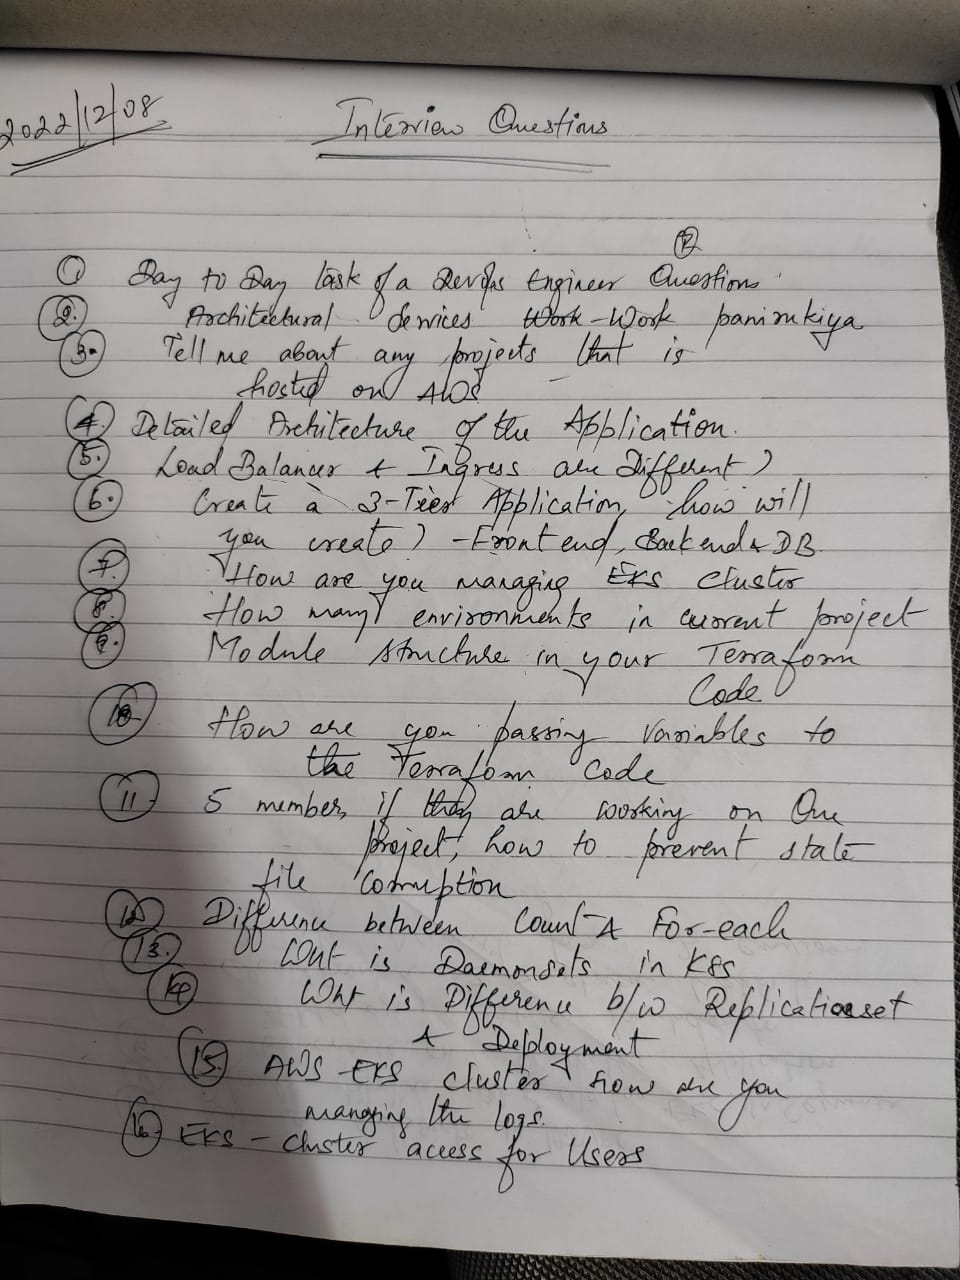 2022/12/08
Interview Questions
① Day to Day task of a Devops Engineer Questions
②. Architectural Services Work-Work panirukiya
③. Tell me about any projects that is
hosted on AWS
④. Detailed Architecture of the Application.
⑤. Load Balancer & Ingress are Different?
⑥. Create a 3-Tier Application, how will
you create? - Frontend, Backend & DB.
⑦. How are you managing EKS Cluster
⑧. How many environments in current project
⑨. Module structure in your Terraform
Code
⑩. How are you passing variables to
the Terraform Code
⑪ 5 member, if they are working on One
project, how to prevent state
file Corruption
⑫ Difference between Count & For-each
⑬. What is Daemonsets in K8s
⑭ What is Difference b/w Replicationset
& Deployment
⑮. AWS EKS cluster how are you
managing the logs.
⑯ EKS - cluster access for Users